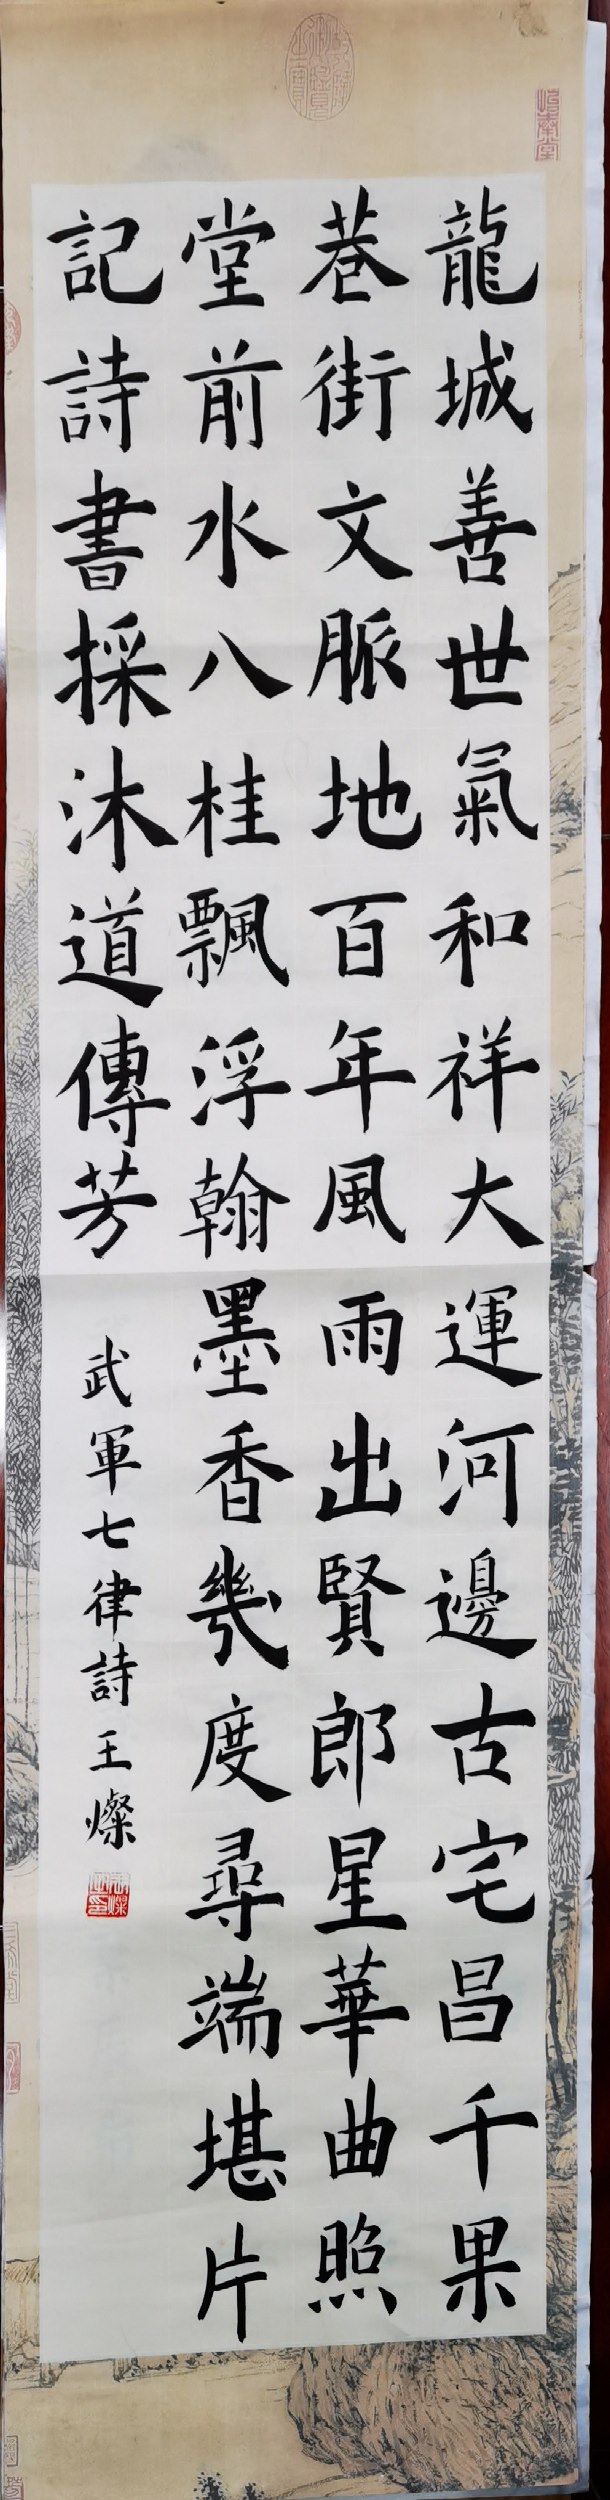 龍城善世氣和祥大運河邊古宅昌千果
巷街文脈地百年風雨出賢郎星華曲照
堂前水八桂飄浮翰墨香幾度尋端堪片
記詩書採沐道傳芳
武軍七律詩王燦